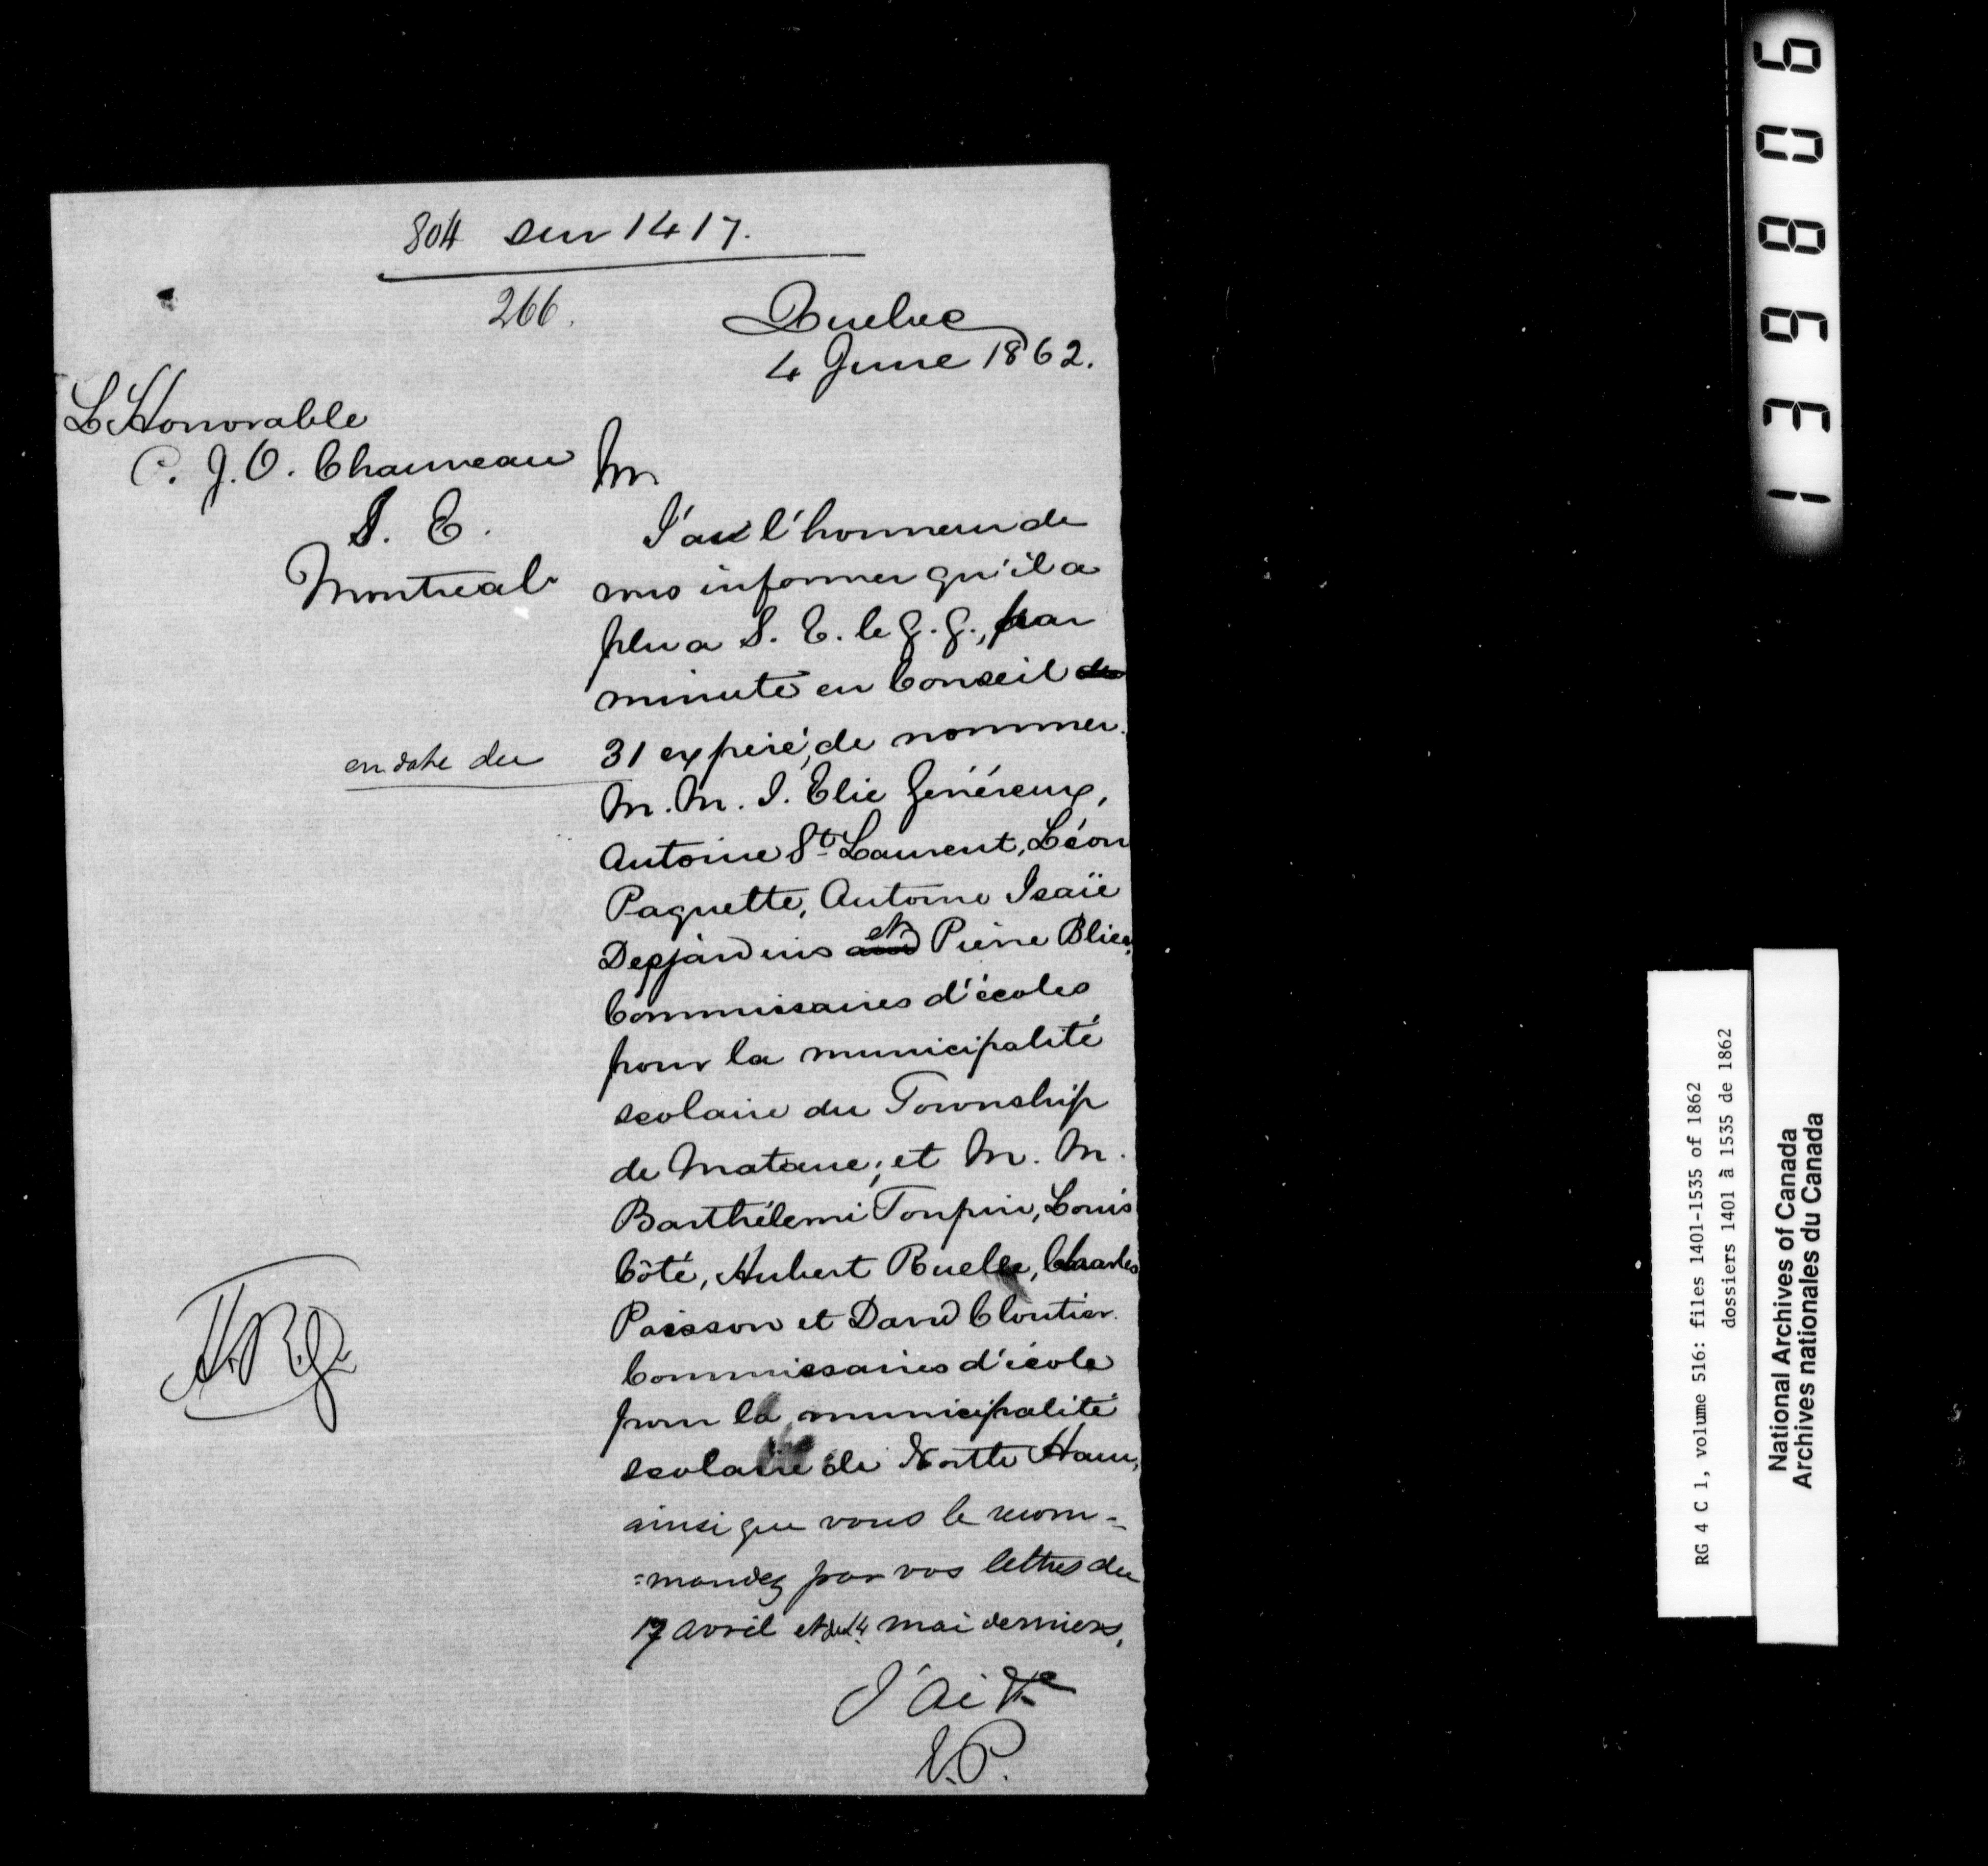 804 sur 1417.
266.
Quebec
4 June 1862.
L'Honorable
P. J. O. Chauveau
S. E.
Montreal
M
J'ai l'honneur de
vous informer qu'il a
plu a S. E. le G. G., par
minute en Conseil du
en date du
31 expiré, de nommer
M. M. J. Elie Généreux,
Antoine St Laurent, Léon
Paquette, Antoine Isaïe
Desjardins and et Pierre Blier,
Commissaires d'écoles
pour la municipalité
scolaire du Township
de Matane; et M. M.
Barthélemi Toupin, Louis
Côté, Hubert Ruelle, Charles
Poisson et David Cloutier
Commissaires d'école
pour la municipalité
scolaire de North Ham,
ainsi que vous le recom-
=mandez par vos lettres du
17 avril et du 14 mai derniers.
J'ai &c
E.P.
1 3 6 8 0 6
RG 4 C 1, volume 516: files 1401-1535 of 1862
dossiers 1401 à 1535 de 1862
National Archives of Canada
Archives nationales du Canada